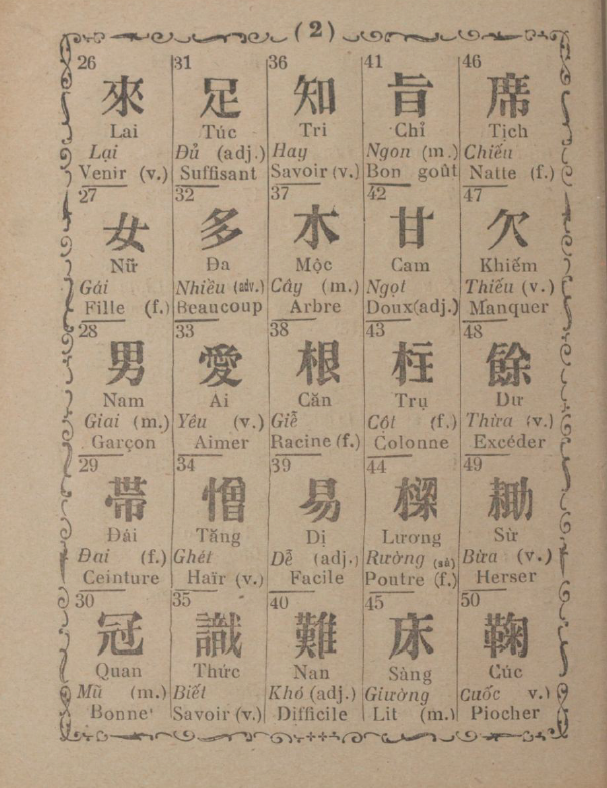 (2)
26
來
Lai
Lại
Venir (v.)
27
女
Nữ
Gái
Fille (f.)
28
男
Nam
Giai (m.)
Garçon
29
帶
Đái
Đai (f.)
Ceinture
30
冠
Quan
Mũ (m.)
Bonne
31
足
Túc
Đủ (adj.)
Suffisant
32
多
Đa
Nhiều (adv.)
Beaucoup
33
愛
Ai
Yêu (v.)
Aimer
34
憎
Tăng
Ghét
Haïr (v.)
35
識
Thức
Biết
Savoir (v.)
36
知
Tri
Hay
Savoir (v.)
37
木
Mộc
Cây (m.)
Arbre
38
根
Căn
Giễ
Racine (f.)
39
易
Dị
Dễ (adj.)
Facile
40
難
Nan
Khó (adj.)
Difficile
41
旨
Chỉ
Ngon (m.)
Bon goût
42
甘
Cam
Ngọt
Doux(adj.)
43
柱
Trụ
Cột (f.)
Colonne
44
樑
Lương
Rường (sà)
Poutre (f.)
45
床
Sàng
Giường
Lit (m.)
46
席
Tịch
Chiếu
Natte (f.)
47
欠
Khiếm
Thiếu (v.)
Manquer
48
餘
Dư
Thừa (v.)
Excéder
49
耡
Sừ
Bừa (v.)
Herser
50
鞠
Cúc
Cuốc v.)
Piocher